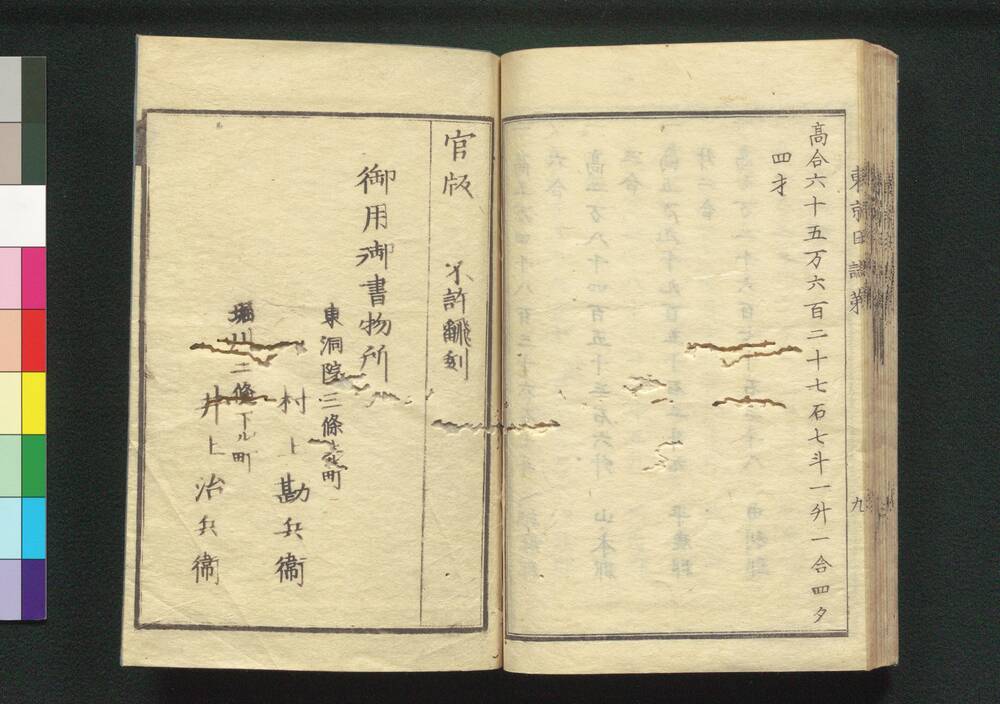 高合六十五万六百二十七石七斗一升一合四夕
四才
東京日誌第
九
官版 不許飜刻
御用御書物所
東洞院三條上ル町
村上勘兵衞
堀川二條下ル町
井上治兵衞